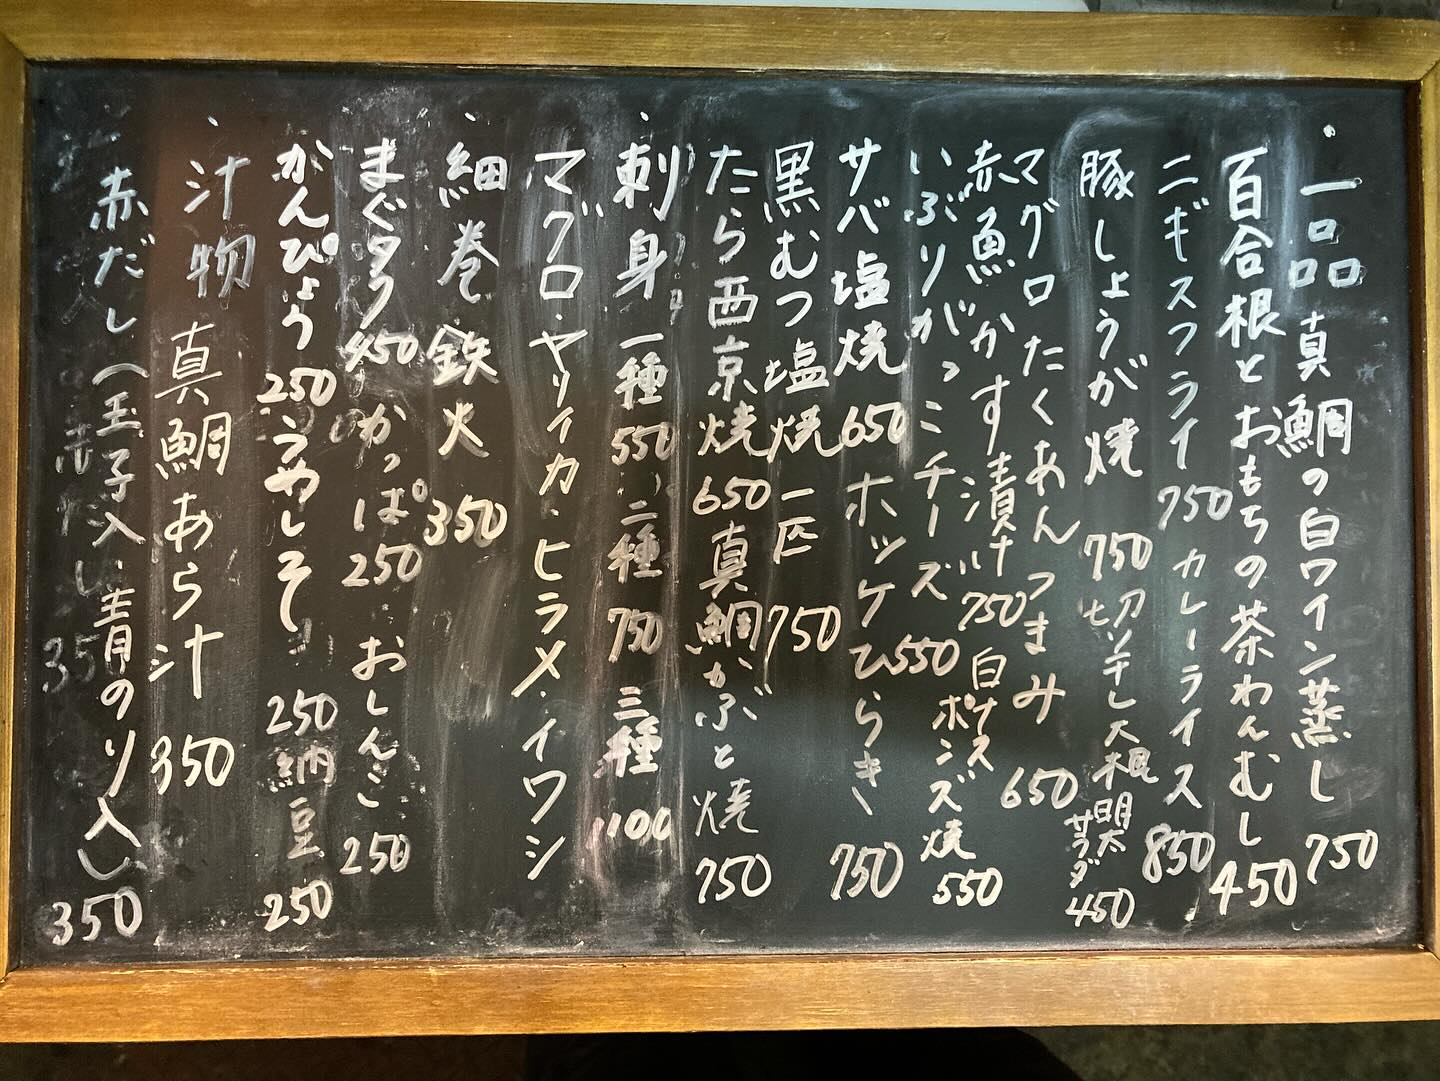 ・一品 真鯛の白ワイン蒸し 750
百合根とおもちの茶わんむし 450
ニギスフライ 750 カレーライス 850
豚しょうが焼 750 切干し大根 サラダ 450
マグロたくあんつまみ 650
赤魚かす漬け 750 白ナス ポンズ焼 550
いぶりがっこチーズ 550
サバ塩焼 650 ホッケひらき 750
黒むつ塩焼 一匹 750
たら西京焼 650 真鯛かぶと焼 750
・刺身 一種 550 二種 750 三種 1100
マグロ・ヤリイカ・ヒラメ・イワシ
・細巻 鉄火 350
まぐタク 450 かっぱ 250 おしんこ 250
かんぴょう 250 うめしそ 250 納豆 250
・汁物 真鯛あら汁 350
赤だし(玉子入・青のり入) 350